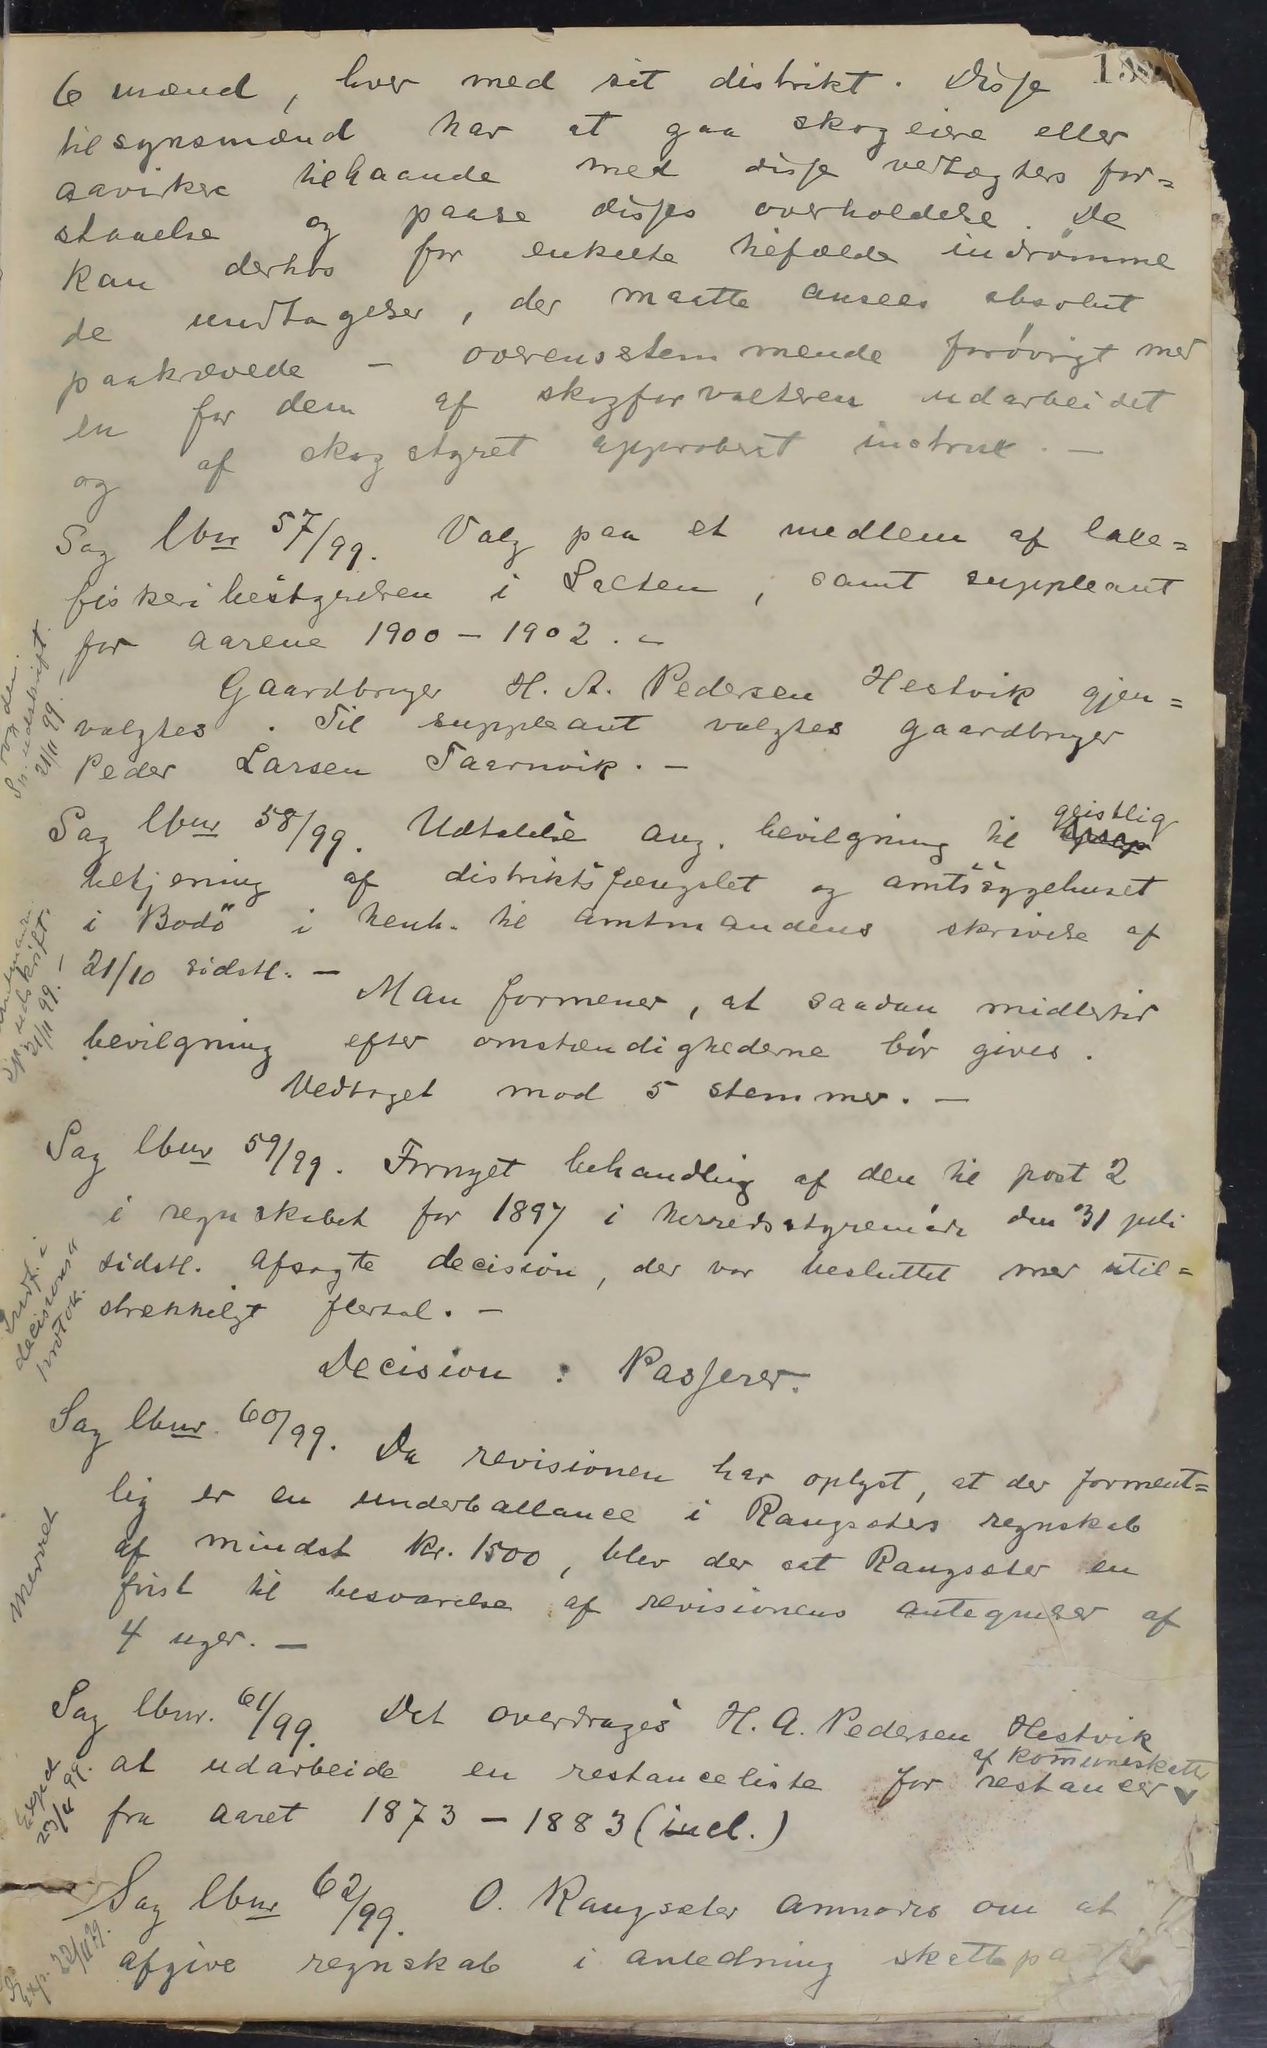 6 mænd, hver med sit distrikt. Disse
tilsynsmænd har at gaa skogeiere eller
aavirkere tilhaande med disse vedtægters for=
staaelse og paase disses overholdelse. De
kan derhos for enkelte tilfælde indrømme
de undtagelser, der maatte ansees absolut
paakrævede - overensstemmende forøvrigt med
en for dem af skogforvalteren udarbeidet
og af skogstyret approberet instrux. -
Sag lbnr 57/99. Valg paa et medlem af laxe=
fiskeribestyrelsen i Salten, samt suppleant
for aarene 1900 - 1902. -
Gaardbruger H. A. Pedersen Hestvik gjen=
valgtes. Til suppleant valgtes gaardbruger
Peder Larsen Taarnvik. -
fogden.
Sn. udskrift
21/11 99. -
Sag lbnr 58/99. Udtalelse ang. bevilgning til geistlig
betjening af distriktsfængslet og amtssygehuset
i Bodö i henh. til amtmandens skrivelse af
21/10 sidstl. -
Man formener, at saadan midlertid
bevilgning efter omstændighederne bør gives.
Vedtaget mod 5 stemmer. -
amtmann.
udskrift.
21/11 99. -
Sag lbnr 59/99. Fornyet behandling af den til post 2
i regnskabet for 1897 i herredsstyremøde den 31 juli
sidstl. afsagte decision, der var besluttet med util=
strækkeligt flertal. -
Decision: Passerer.
Indf. i
decisions
protok.
Sag lbnr. 60/99. Da revisionen har oplyst, at der forment=
lig er en underballance i Rangsæters regnskab
af mindst kr. 1500, blev der sat Rangsæter en
frist til besvarelse af revisionens antegnelser af
4 uger. -
Sag lbnr. 61/99. Det overdrages H. A. Pedersen Hestvik
at udarbeide en restanceliste for restancer af kommuneskatte
fra aaret 1873 - 1883 (incl.)
Exped
23/11 99.
Sag lbnr 62/99. O. Rangsæter anmodes om at
afgive regnskab i anledning
Exp. 22/11 99.